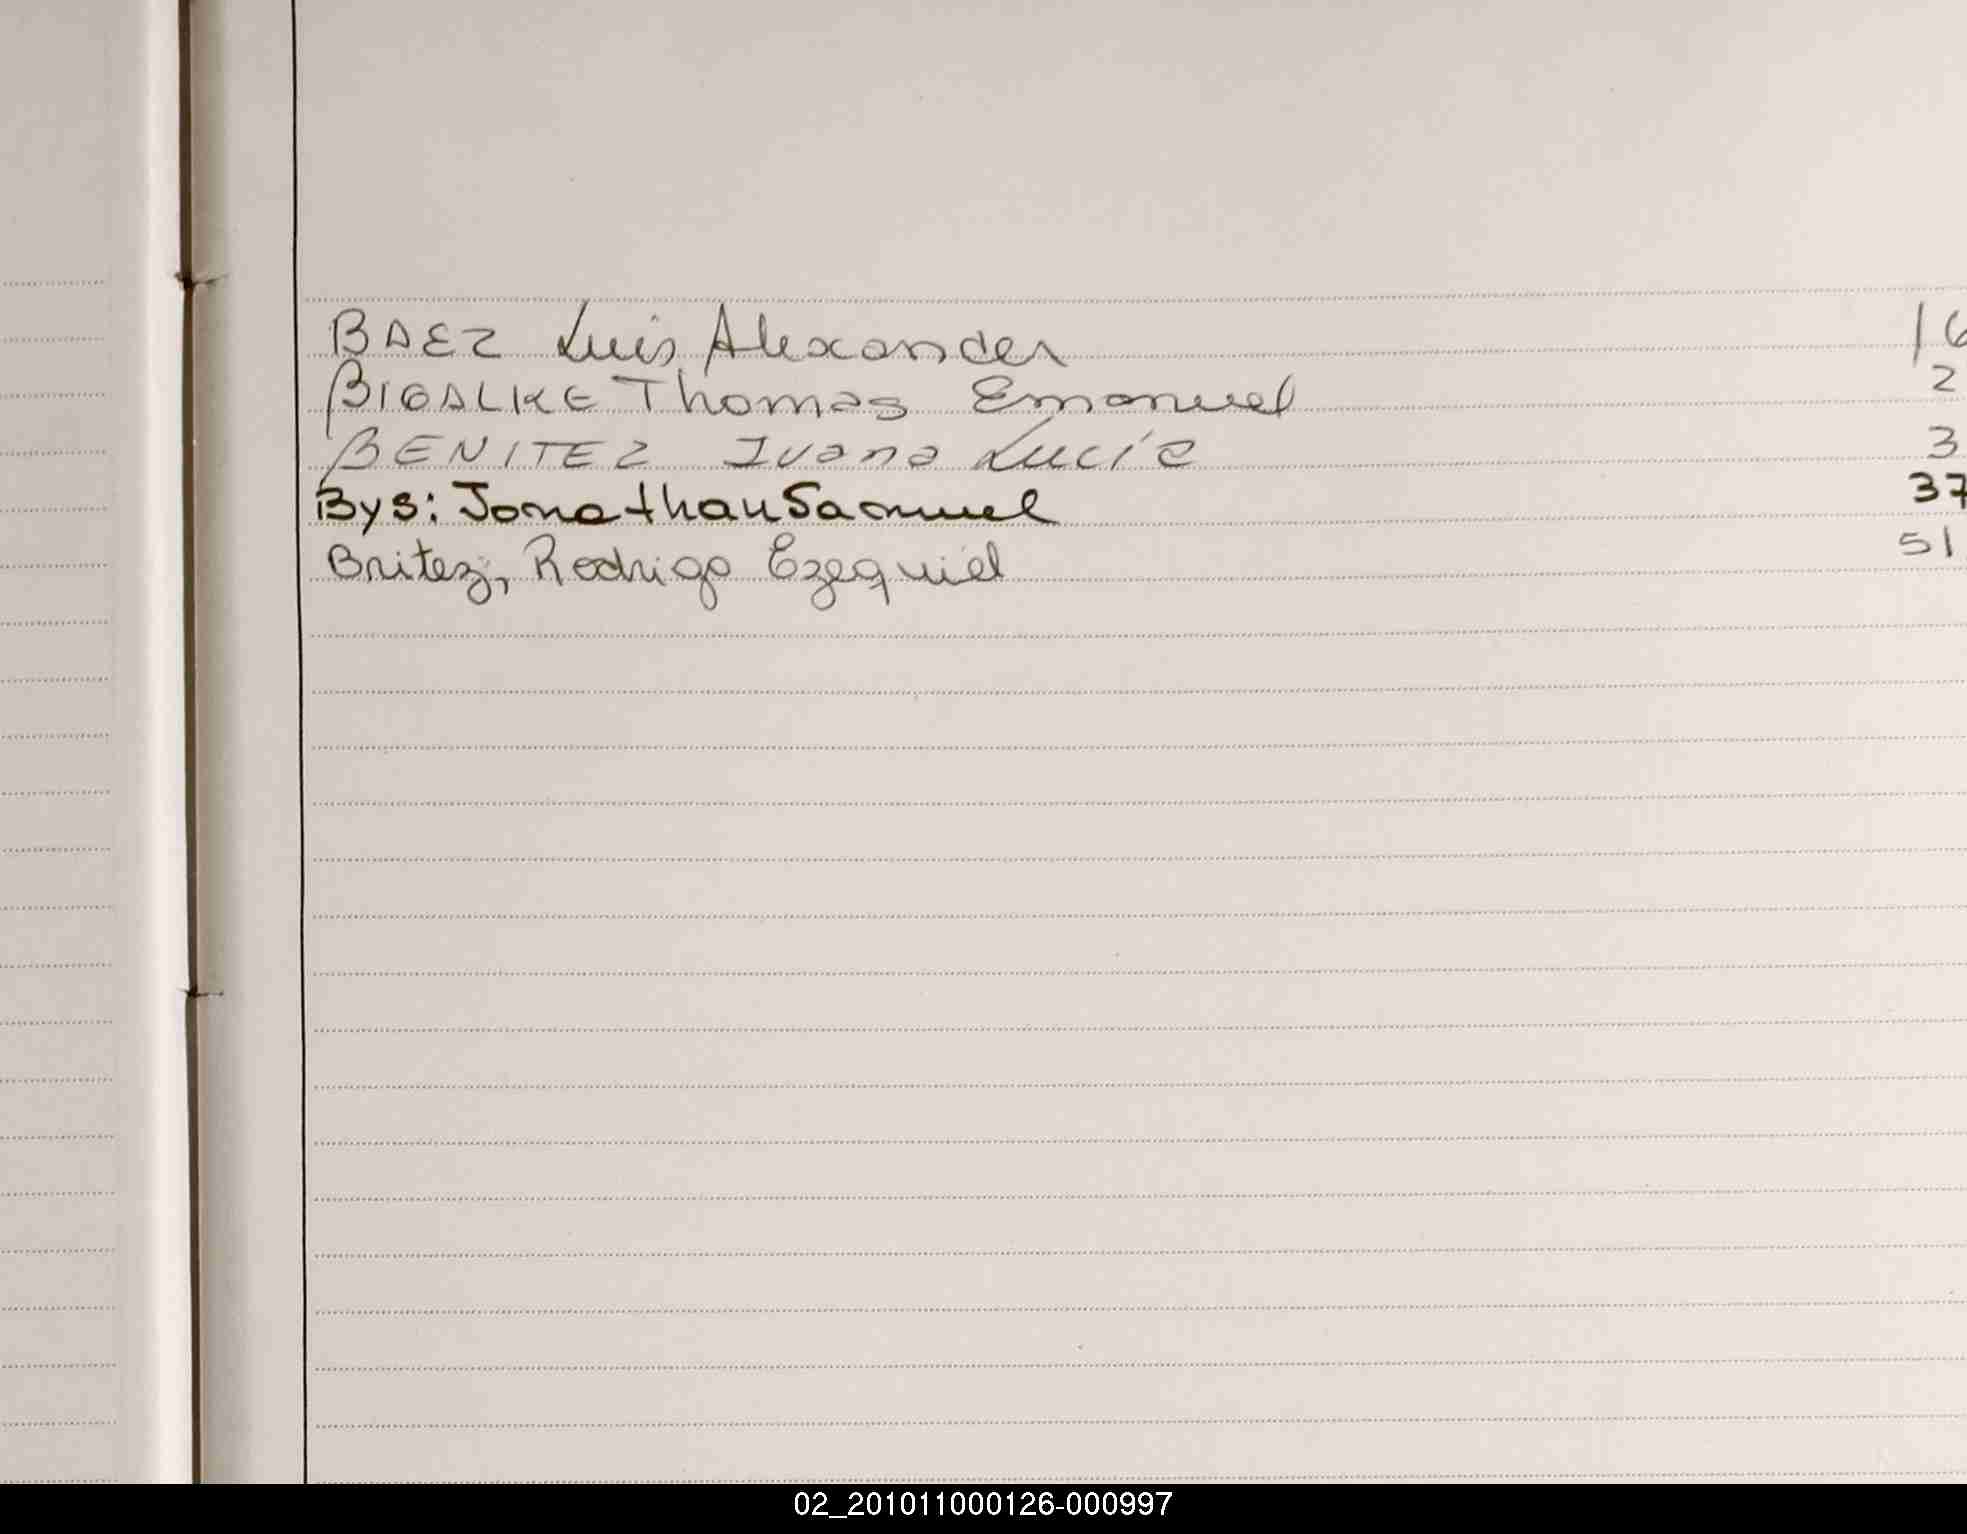 BAEZ Luis Alexander 16
BIGALKE Thomas Emanuel 2
BENITEZ Ivana Lucía 3
Bys: Jonathan Samuel 37
Britez, Rodrigo Ezequiel 51
02_201011000126-000997